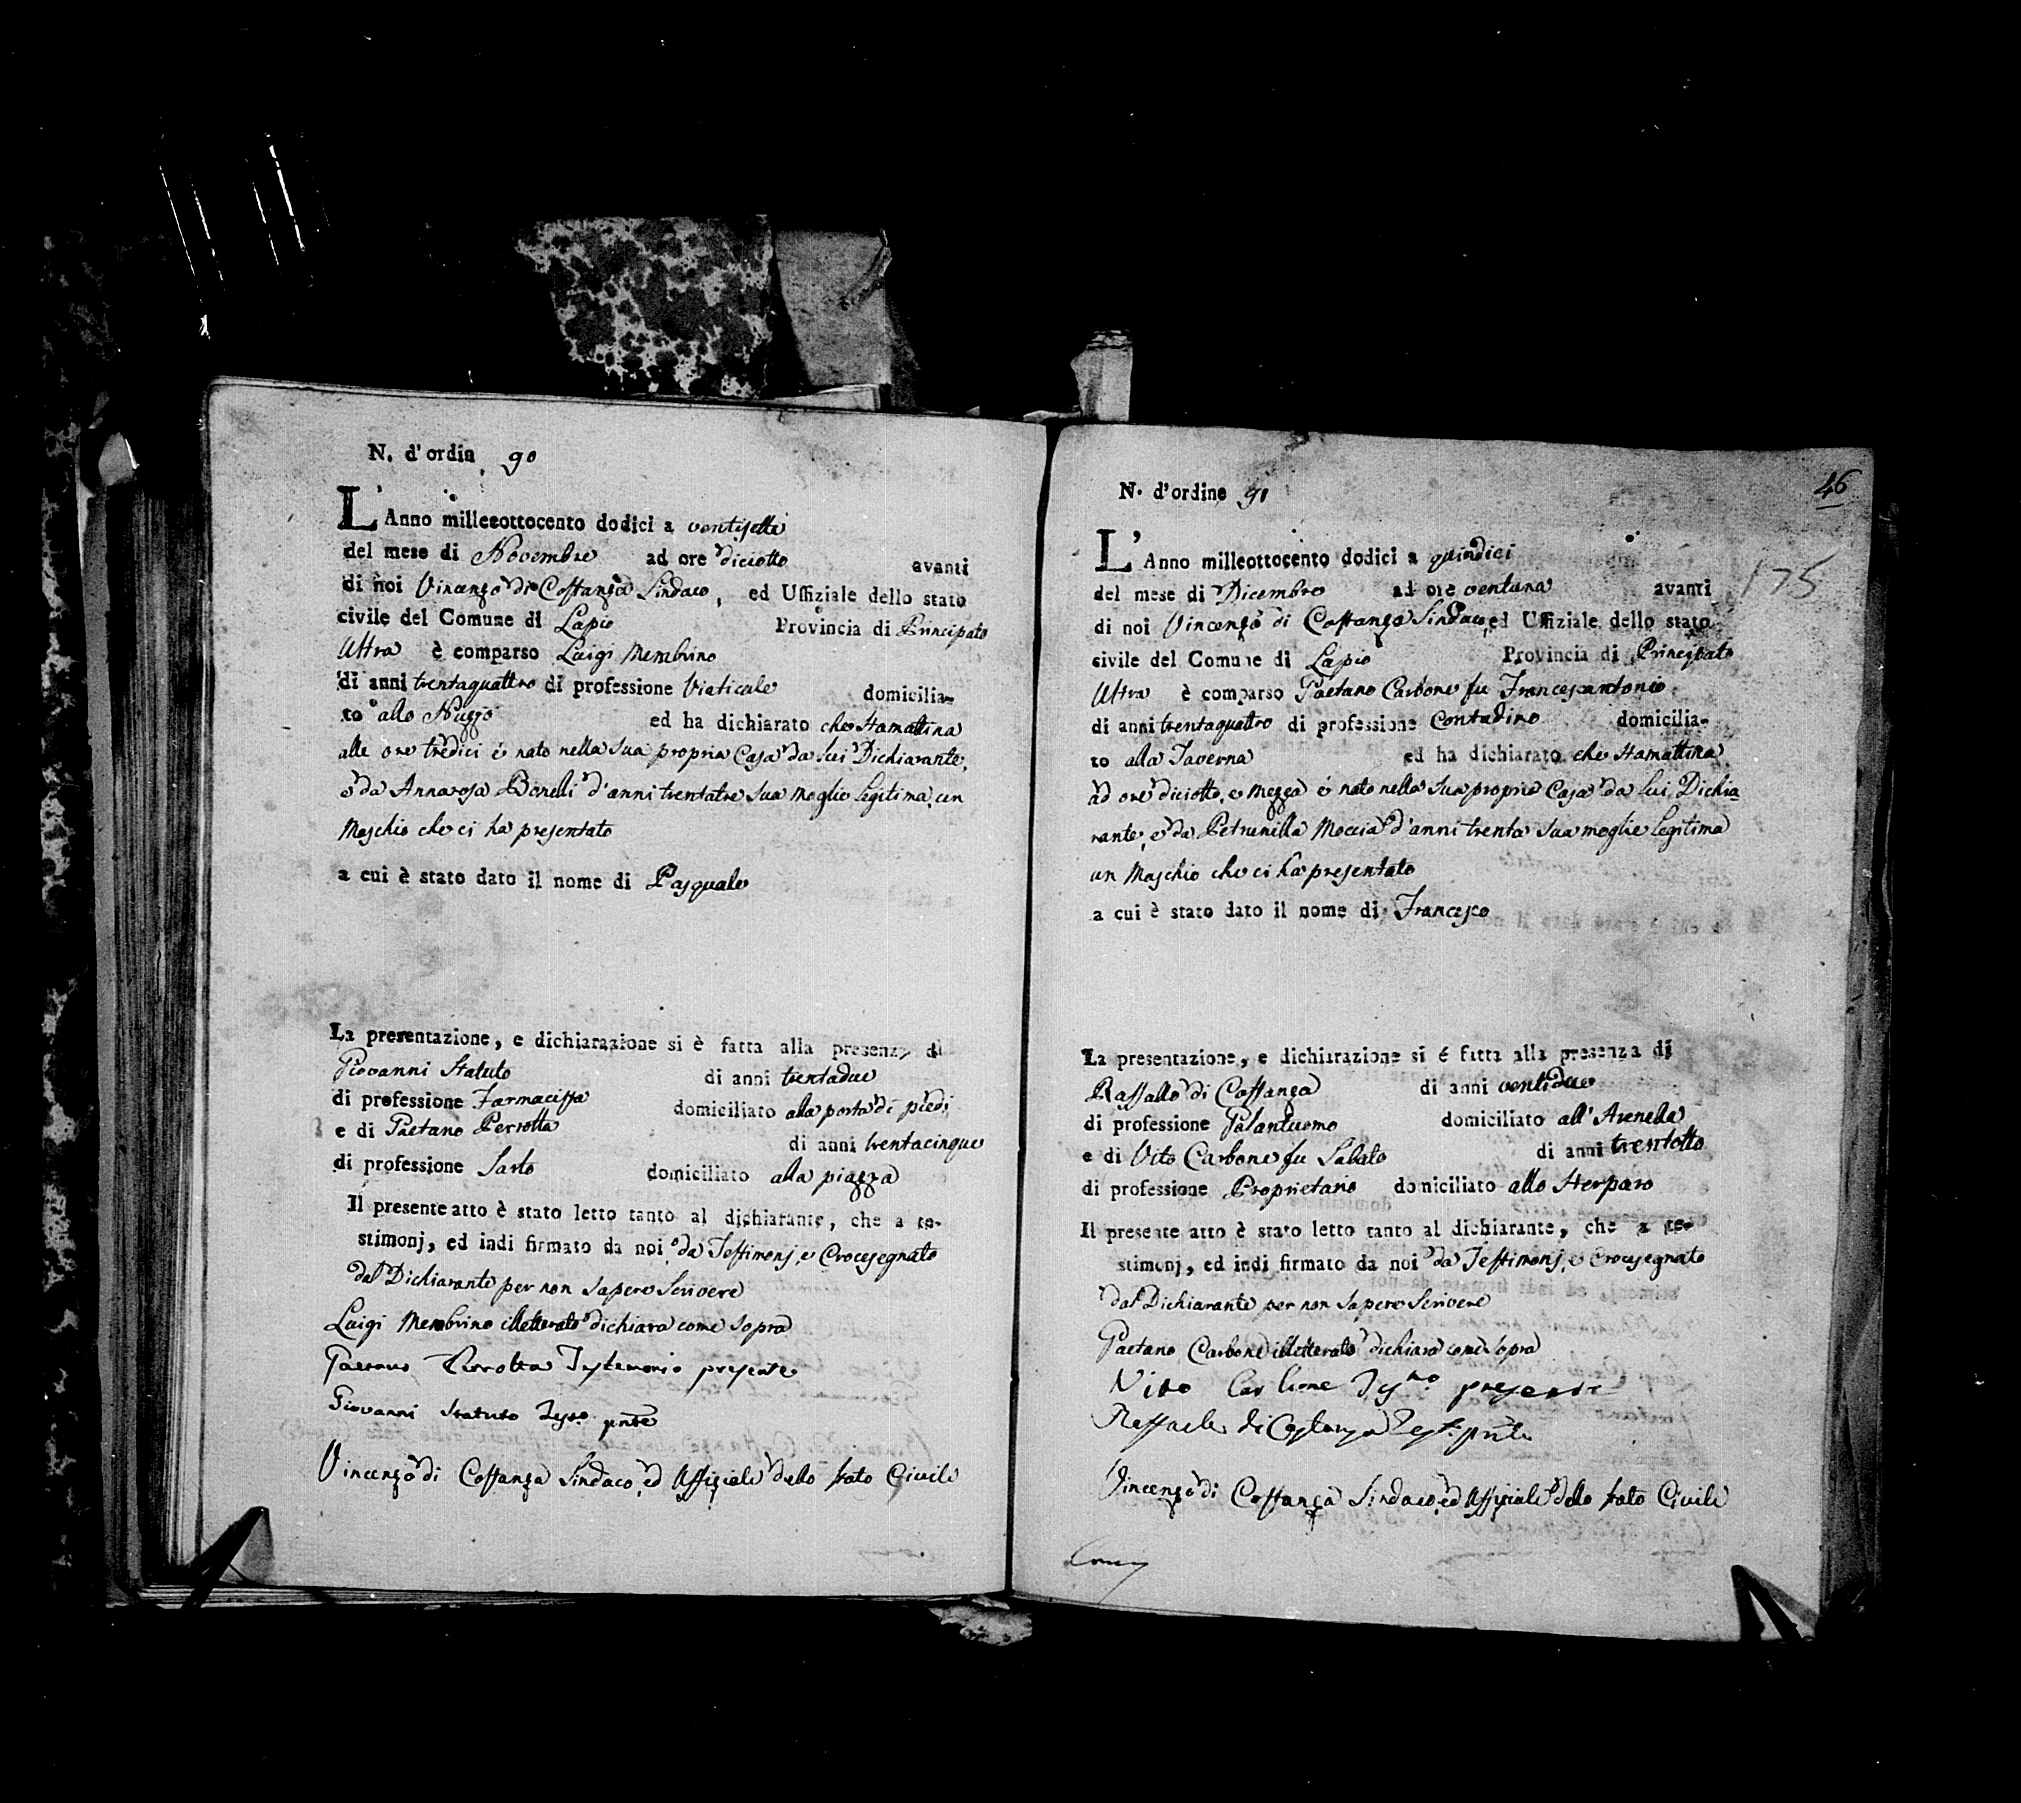 N. d'ordin 90
L'Anno milleeottocento dodici a ventisette
del mese di Novembre ad ore diciotto avanti
di noi Vincenzo di Costanza Sindaco, ed Uffiziale dello stato
civile del Comune di Lapio Provincia di Principato
Ultra è comparso Luigi Membrino
di anni trentaquattro di professione Viaticale domicilia-
to allo Nuzzo ed ha dichiarato che stamattina
alle ore tredici è nato nella sua propria Casa da lui Dichiarante,
e da Annarosa Bonelli d'anni trentatre sua moglie legitima, un
Maschio che ci ha presentato
a cui è stato dato il nome di Pasquale
La presentazione, e dichiarazione si è fatta alla presenza di
Giovanni Statuto di anni trentadue
di professione Farmacista domiciliato alla porta di piedi
e di Gaetano Perrotta di anni trentacinque
di professione Sarto domiciliato alla piazza
Il presente atto è stato letto tanto al dichiarante, che a te-
stimonj, ed indi firmato da noi da Testimonj, e Crocesegnato
dal Dichiarante per non sapere scrivere
Luigi Membrino illetterato dichiara come sopra
Gaetano Perrotta Testimonio presente
Giovanni Statuto Testo. pnte
Vincenzo di Costanza Sindaco, ed Uffiziale dello stato Civile
46
175
N. d'ordine 91
L'Anno milleottocento dodici a quindici
del mese di Dicembre ad ore ventuna avanti
di noi Vincenzo di Costanza Sindaco, ed Uffiziale dello stato
civile del Comune di Lapio Provincia di Principato
Ultra è comparso Gaetano Carbone fu Francescantonio
di anni trentaquattro di professione Contadino domicilia-
to alla Taverna ed ha dichiarato che stamattina
ad ore diciotto, e mezza è nato nella sua propria Casa da lui Dichia
rante, e da Petrunilla Moccia d'anni trenta sua moglie legitima
un Maschio che ci ha presentato
a cui è stato dato il nome di Francesco
La presentazione, e dichiarazione si é fatta alla presenza di
Raffaele di Costanza di anni ventidue
di professione Galantuomo domiciliato all' Arenella
e di Vito Carbone fu Sabato di anni trentotto
di professione Proprietario domiciliato allo Sterparo
Il presente atto è stato letto tanto al dichiarante, che a te-
stimonj, ed indi firmato da noi da Testimonj, e Crocesegnato
dal Dichiarante per non sapere scrivere
Gaetano Carbone illetterato dichiara come sopra
Vito Carbone Testmo. presente
Raffaele di Costanza Test. pnte
Vincenzo di Costanza Sindaco, ed Uffiziale dello stato Civile